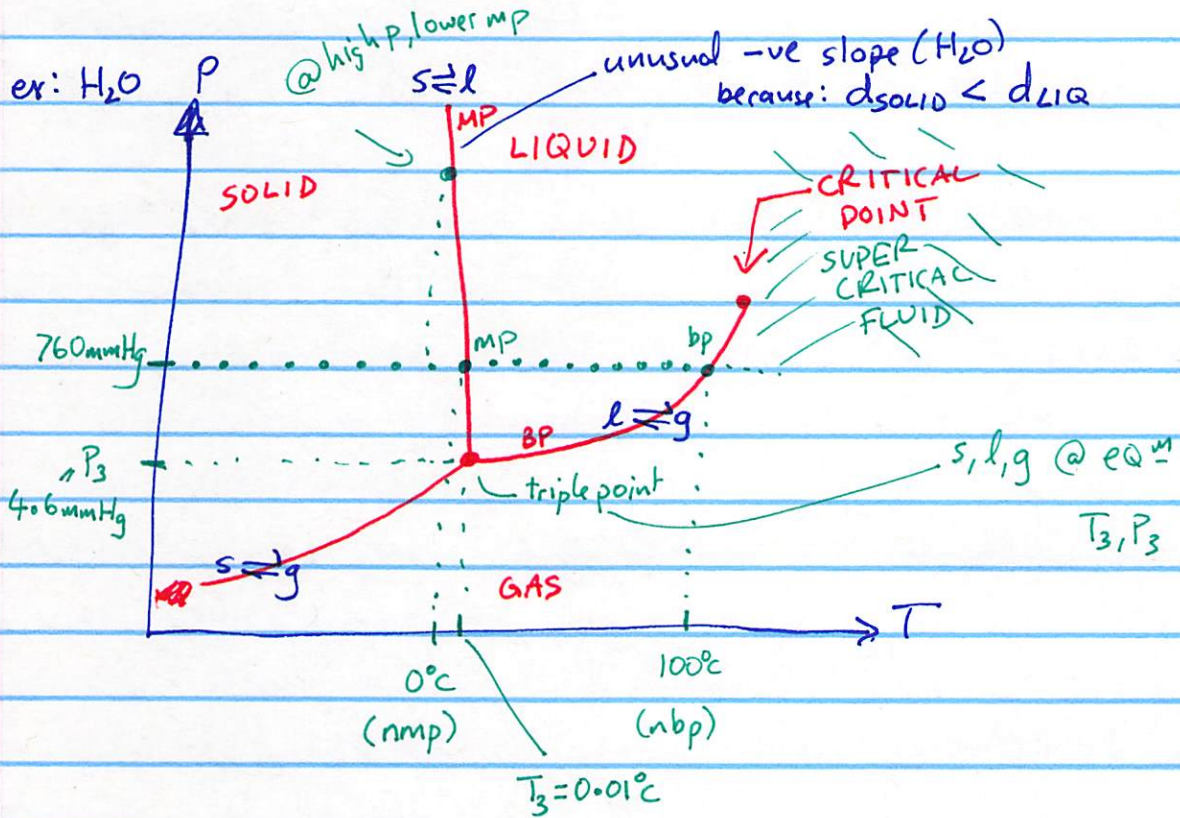 @high p, lower mp
ex: H₂O
P
s⇌l
unusual -ve slope (H₂O)
because: d_SOLID < d_LIQ
MP
LIQUID
SOLID
CRITICAL
POINT
SUPER
CRITICAL
FLUID
760mmHg
mp
bp
l⇌g
BP
P₃
4.6mmHg
triple point
s, l, g @ eqᵐ
T₃, P₃
s⇌g
GAS
T
0°C
(nmp)
100°C
(nbp)
T₃=0.01°C